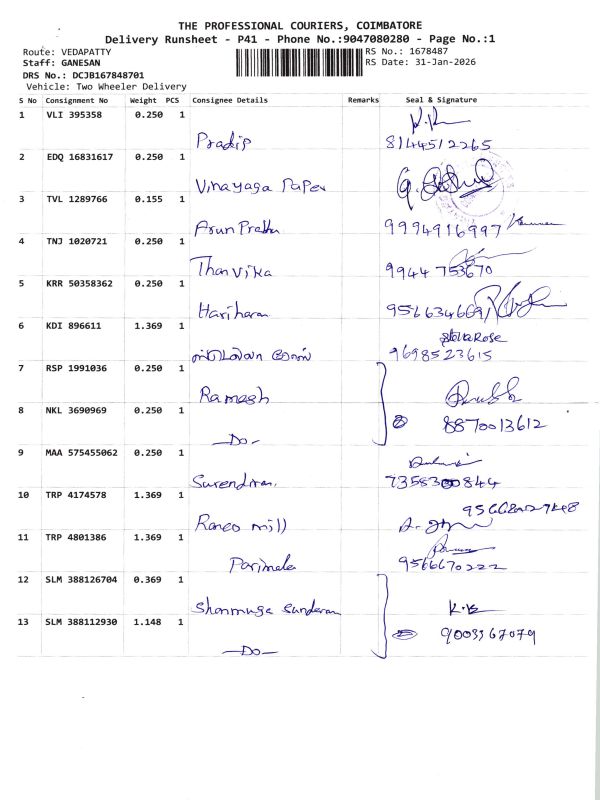 THE PROFESSIONAL COURIERS, COIMBATORE
Delivery Runsheet - P41 - Phone No.:9047080280 - Page No.:1
Route: VEDAPATTY RS No.: 1678487
Staff: GANESAN RS Date: 31-Jan-2026
DRS No.: DCJB167848701
Vehicle: Two Wheeler Delivery
S No Consignment No Weight PCS Consignee Details Remarks Seal & Signature
1 VLI 395358 0.250 1
Pradip 8144512265
2 EDQ 16831617 0.250 1
Vinayaga Paper
3 TVL 1289766 0.155 1
Arun Prabhu 9994916997
4 TNJ 1020721 0.250 1
Thanvika 9944753670
5 KRR 50358362 0.250 1
Hariharan
6 KDI 896611 1.369 1
Rose
9698523615
7 RSP 1991036 0.250 1
Ramesh
8 NKL 3690969 0.250 1
-Do- 8870013612
9 MAA 575455062 0.250 1
Surendiran
10 TRP 4174578 1.369 1
mill
11 TRP 4801386 1.369 1
Parimala 9566670222
12 SLM 388126704 0.369 1
Shanmuga Sundaram
13 SLM 388112930 1.148 1
-Do- 9003367079